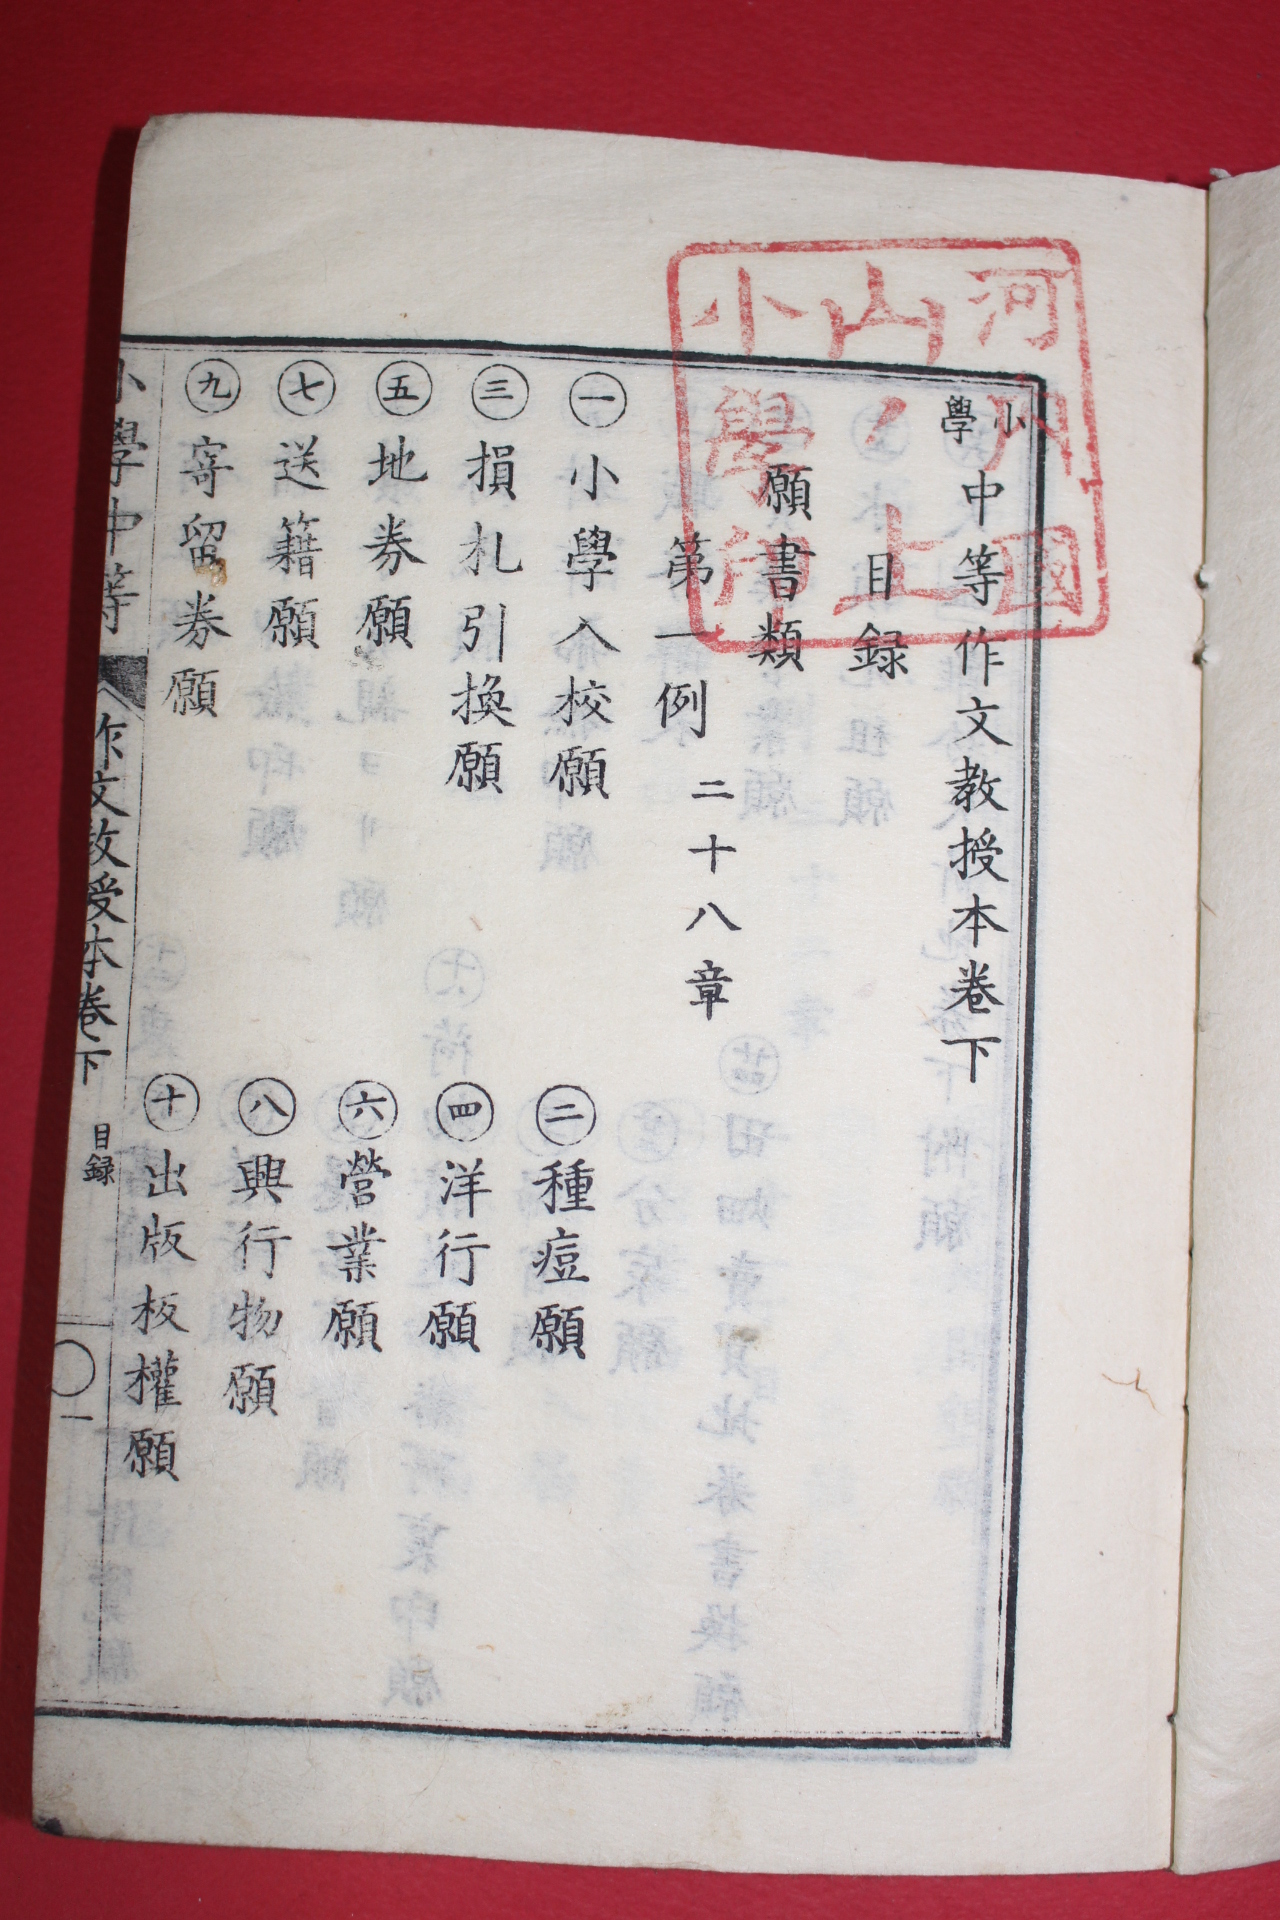 小學中等作文教授本卷下
目録
願書類
第一例 二十八章
㊀小學入校願
㊁種痘願
㊂損札引換願
㊃洋行願
㊄地券願
㊅營業願
㊆送籍願
㊇興行物願
㊈寄留券願
㊉出版板權願
小學中等
作文教授本卷下 目録
一
河内國
山ノ上
小學印